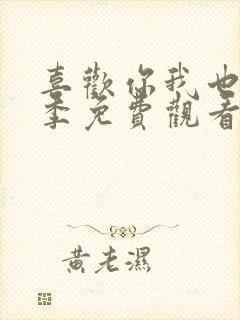 喜歡你我也
季免費觀看
黃老濕